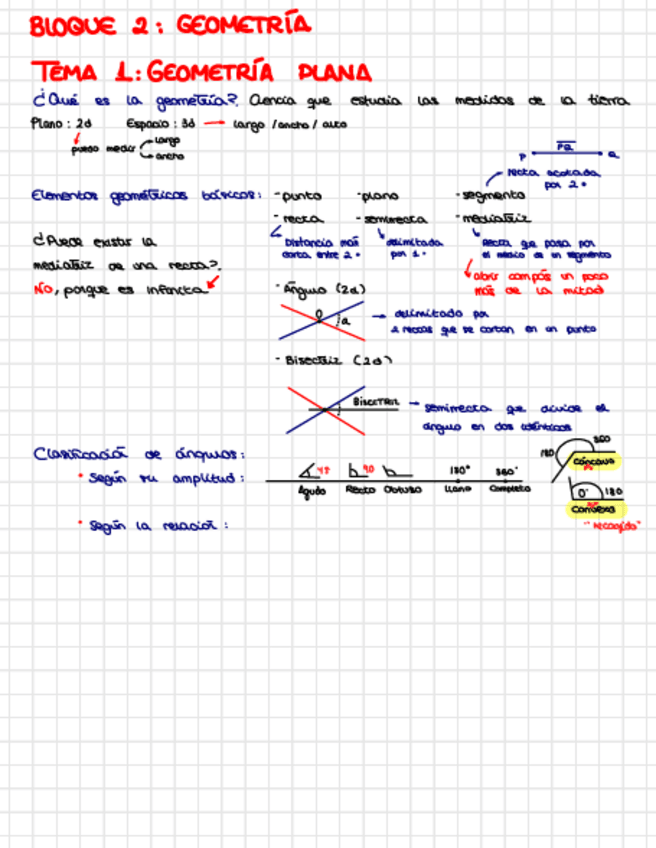 BLOQUE 2: GEOMETRÍA
TEMA 1: GEOMETRÍA PLANA
¿Qué es la geometría?. Ciencia que estudia las medidas de la tierra
Plano: 2d Espacio: 3d → largo /ancho / alto
puedo medir largo
ancho
PQ
P Q
recta acotada
por 2 •
Elementos geométricos básicos: - punto - plano - segmento
- recta - semirrecta - mediatriz
¿Puede existir la
mediatriz de una recta?.
NO, porque es infinita
Distancia más
corta entre 2 •
delimitada
por 1 •
Recta que pasa por
el medio de un segmento
abrir compás un poco
más de la mitad
- Ángulo (2d)
O a → delimitado por
2 rectas que se cortan en un punto
- Bisectriz (2d)
BISECTRIZ → semirrecta que divide el
ángulo en dos idénticos
Clasificación de ángulos:
• Según su amplitud:
90 180° 360°
Agudo Recto Obtuso LLano Completo
180 360
Cóncavo
0° 180
Convexo
"recogido"
• Según la relación: